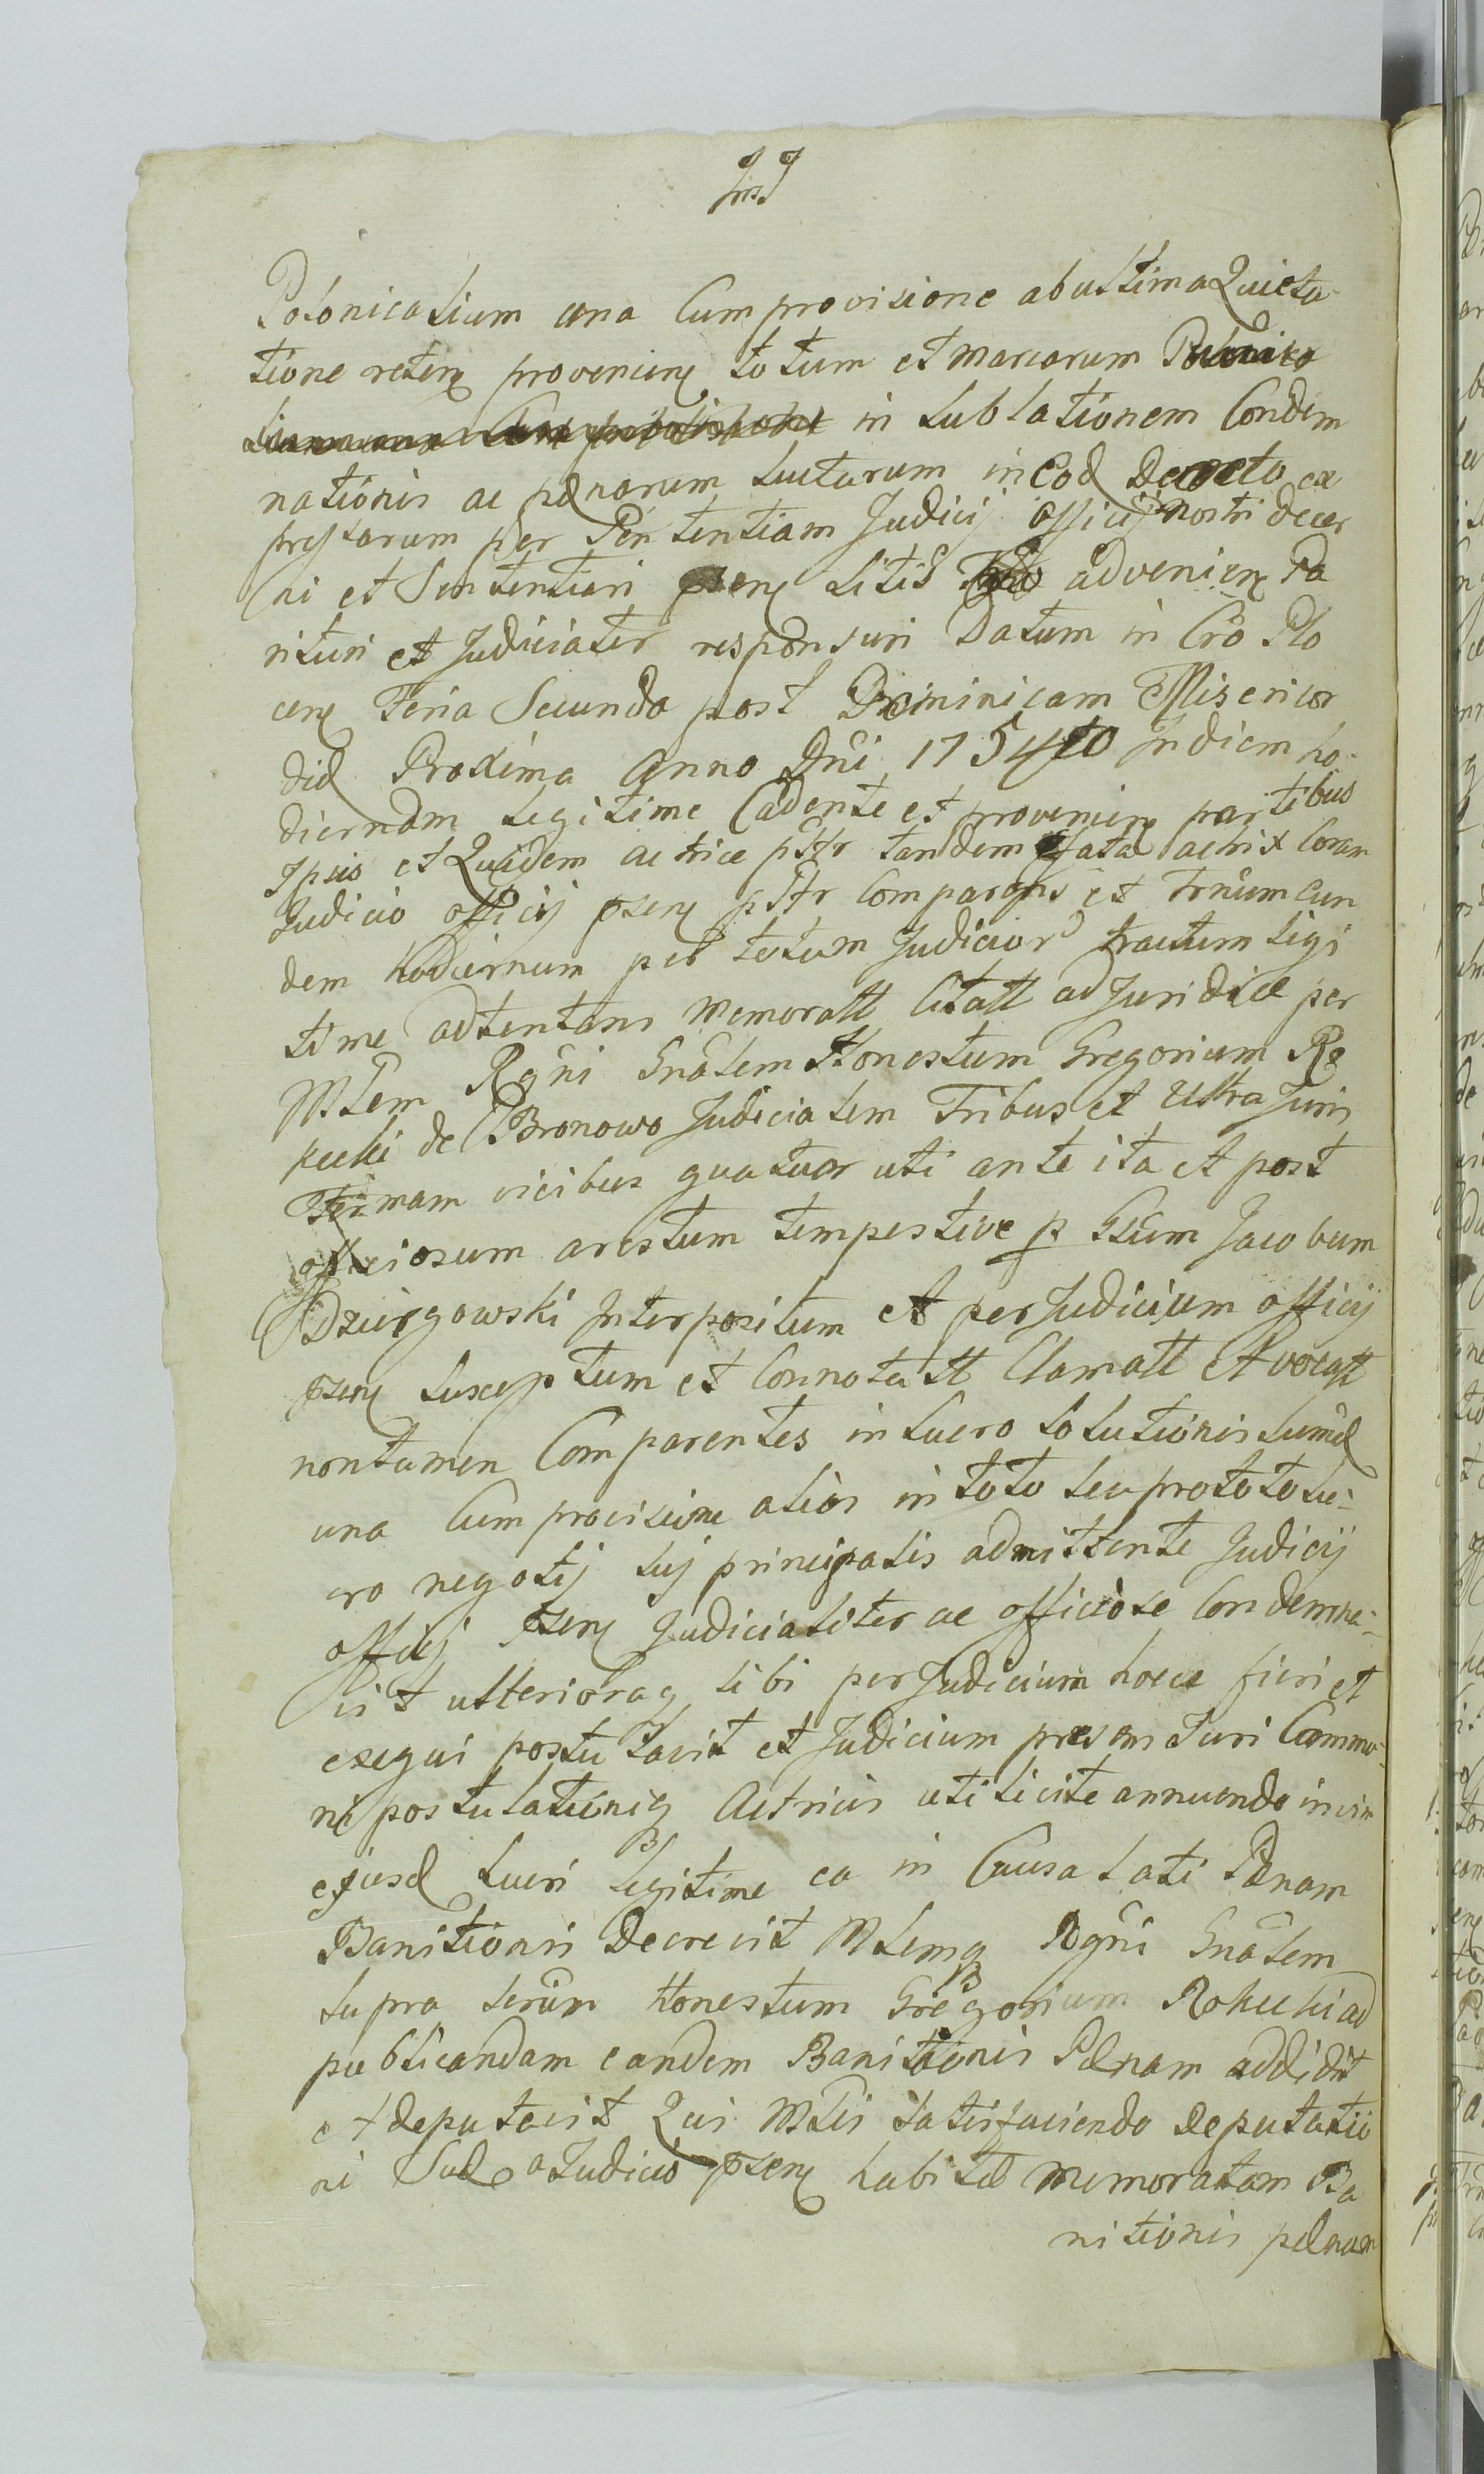 Polonicalium una Cum provisione ab ultima Quieta
tione reten provenien totum et marcarum Polonica
in sublationem Condem
nationis ac pænarum luctarum in Eod Decreto ex
pressarum per Sententiam Judicij officij nostri decer
ni et Sententiari psens litis advenien Pa
rituri et Judicialiter responsuri Datum in Cro Plo
cen Feria Secunda post Dominicam Misericor
diæ Proxima Anno Dni 1754to In diem ho
diernam legitime Cadente et provenien partibus
Ipsis et Quidem actrice psttr tandem actrix Coram
Judicio officij psen psttr Comparens et Trnum eun
dem hodiernum per totum Judicior tractum legi
time adtentans memoratt Citatt ad Juridice per
Mlem Rgni Gnalem Honestum Gregorium Ro
kicki de Bronowo Judicialem Tribus et Ultra Juris
formam vicibus quatuor uti ante ita et post
officiosum arestum tempestive p Gsum Jacobum
Dziergowski Interpositum et per Judicium officij
psen susceptum et Connotatt Clamatt et vocatt
non tamen Comparentes in lucro solutionis summæ
una Cum provisione alias in toto seu pro toto lu
cro negotij sui principalis admittente Judicij
officij psen Judicialiter ac officiose Condemna
vit ulterioraq sibi per Judicium hocce fieri et
exequi postulavit et Judicium præsens Juri Commu
ni postulationiq Actricis uti licite annuendo in vim
ejusd lucri legitime ea in Causa lati Pænam
Banitionis Decrevit Mlemq Rgni Gnalem
supra scrûm Honestum Gregorium Rokicki ad
publicandam eandem Banitionis Pænam addidit
et deputavit Qui Mlis satisfaciendo deputatio
ni Suæ a Judicio psen habitæ memoratam Ba
nitionis pænam